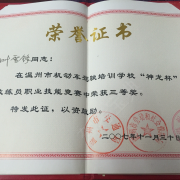 荣誉证书
同志：
在温州市机动车驾驶培训学校“神龙杯”
教练员职业技能竞赛中荣获三等奖。
特发此证，以资鼓励。
二〇〇七年十一月三十日